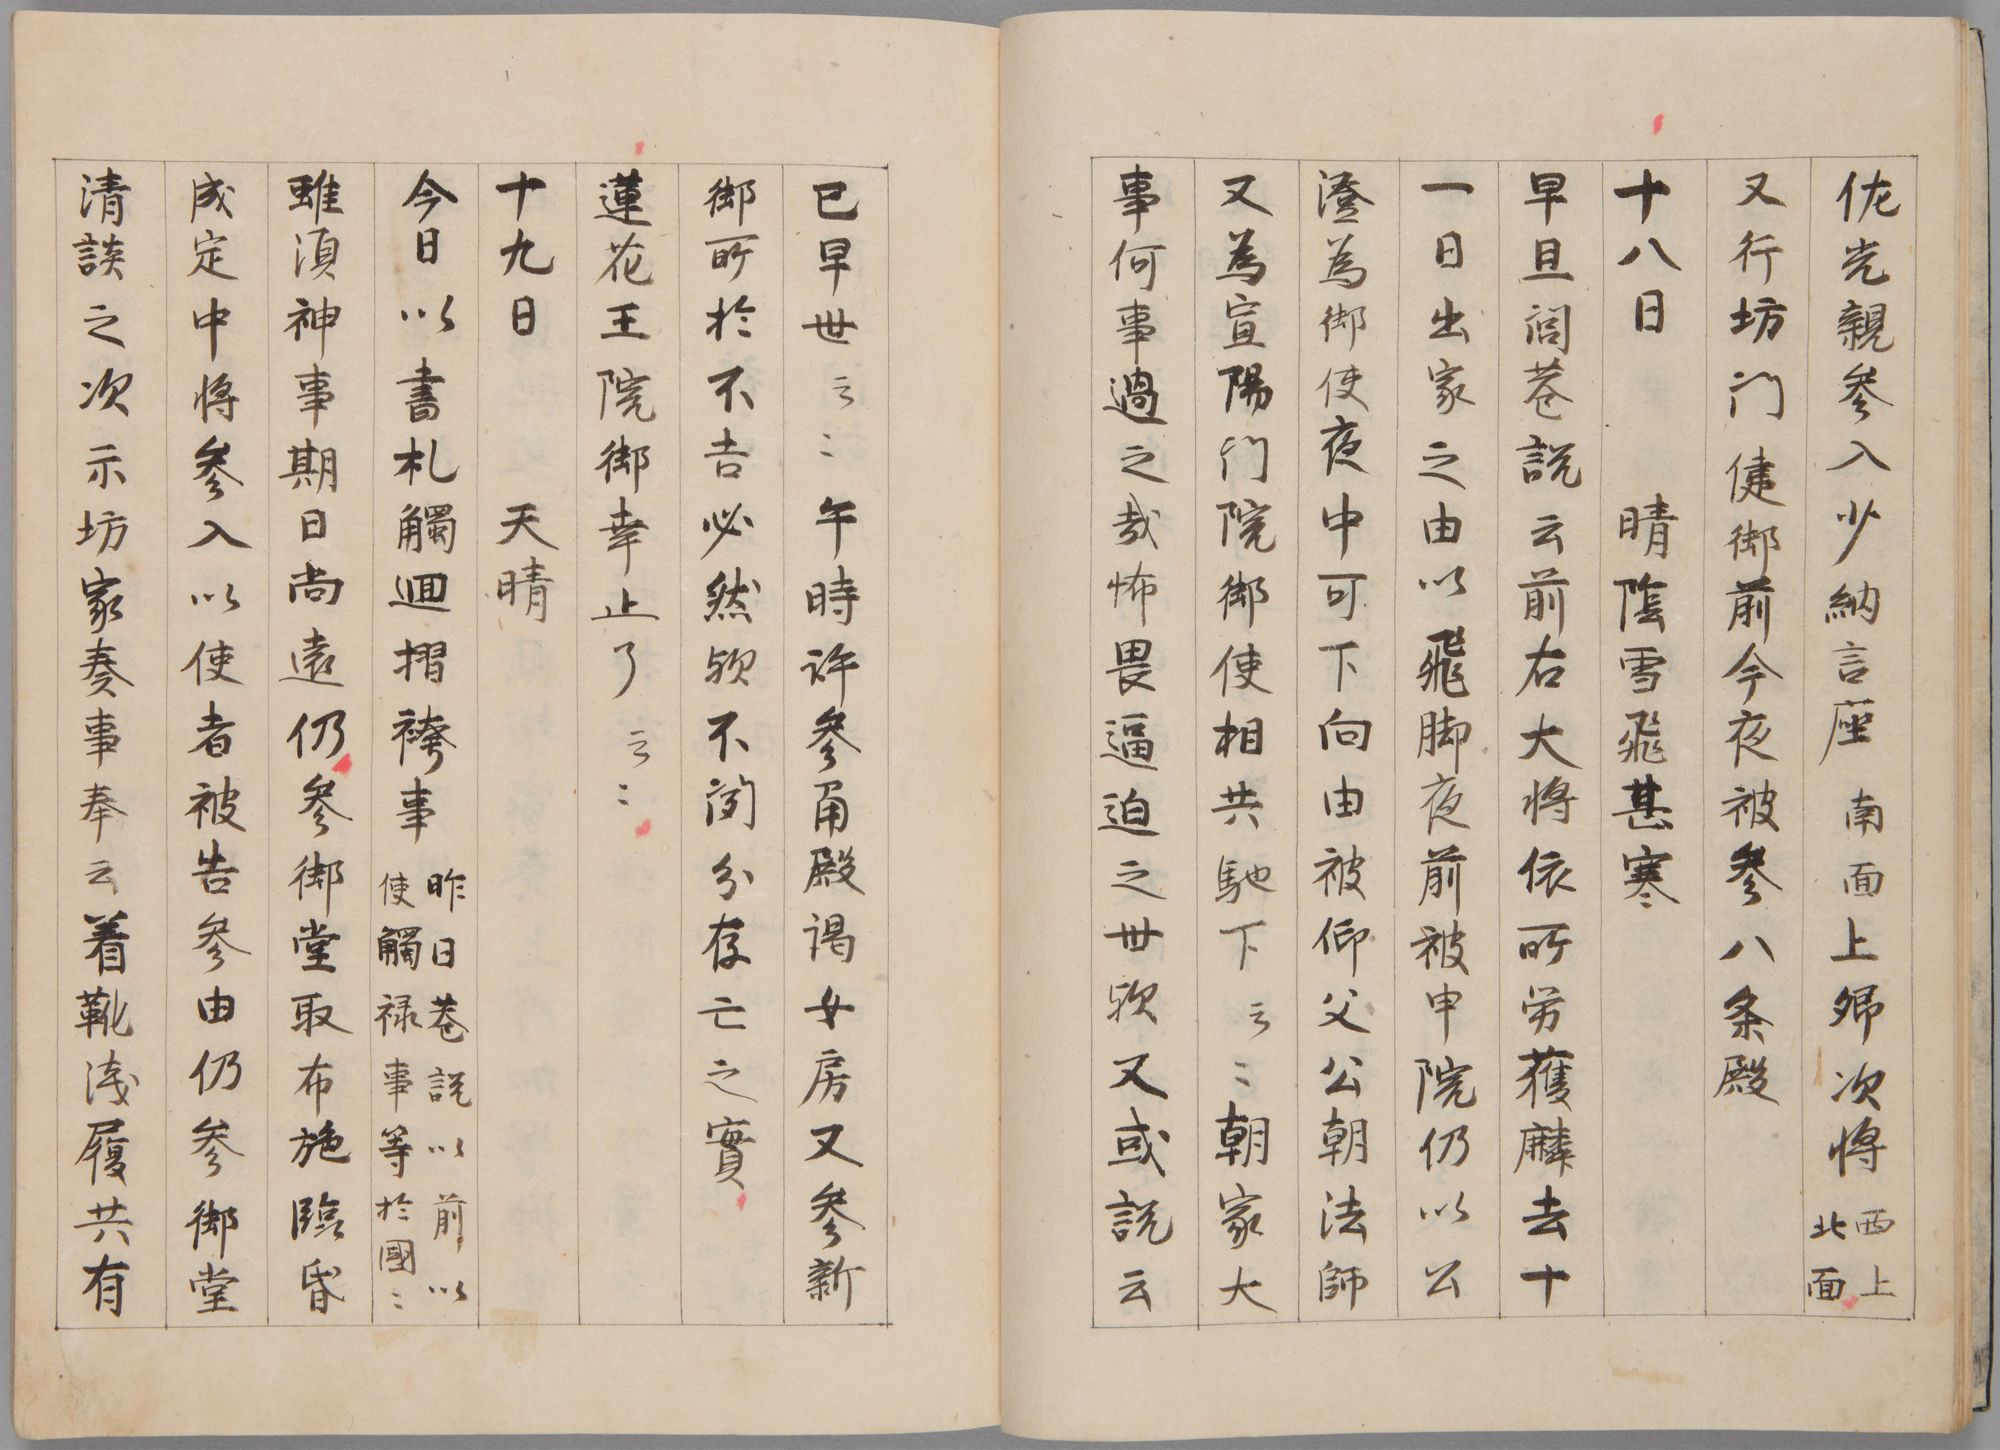 佐光親参入少納言座南面上帰次将西上北面
又行坊門健御前今夜被参八条殿
十八日 晴陰雪飛甚寒
早旦閭巷説云前右大将依所労獲麟去十
一日出家之由以飛脚夜前被申院仍以公
澄為御使夜中可下向由被仰父公朝法師
又為宣陽門院御使相共馳下云々朝家大
事何事過之哉怖畏逼迫之世欤又或説云
已早世云々午時許参甬殿謁女房又参新
御所於不吉必然欤不聞分存亡之實
蓮花王院御幸止了云々
十九日 天晴
今日以書札觸廻摺袴事昨日巷説以前以使觸禄事等於國々
雖須神事期日尚遠仍参御堂取布施臨昏
成定中将参入以使者被告参由仍参御堂
清談之次示坊家奏事奉云着靴浅履共有